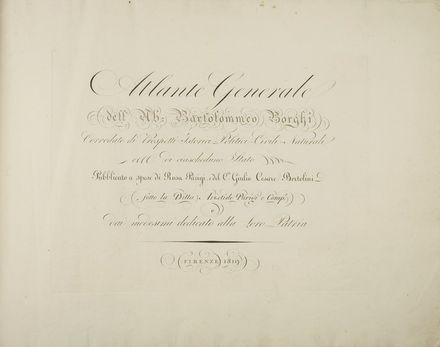 Atlante Generale
dell' Ab: Bartolommeo Borghi
Corredato di Prospetti Istorici Politici Civili Naturali
di ciascheduno Stato
Pubblicato a spese di Rosa Parigi, e del Cᵉ Giulio Cesare Bertolini
sotto la Ditta Aristide Parigi e Compⁱ
e
dai medesimi dedicato alla Loro Patria
FIRENZE 1819